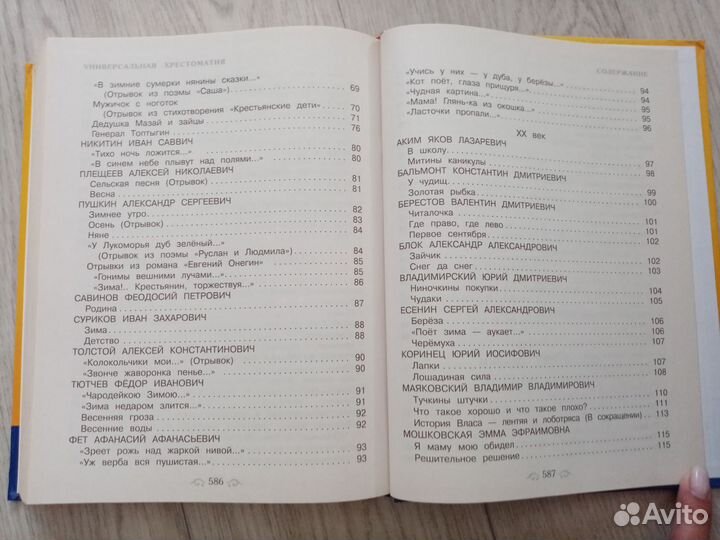 УНИВЕРСАЛЬНАЯ ХРЕСТОМАТИЯ
«В зимние сумерки нянины сказки...»
(Отрывок из поэмы «Саша») . . . . . 69
Мужичок с ноготок
(Отрывок из стихотворения «Крестьянские дети») . . . . . 70
Дедушка Мазай и зайцы . . . . . 71
Генерал Топтыгин . . . . . 76
НИКИТИН ИВАН САВВИЧ
«Тихо ночь ложится...» . . . . . 80
«В синем небе плывут над полями...» . . . . . 80
ПЛЕЩЕЕВ АЛЕКСЕЙ НИКОЛАЕВИЧ
Сельская песня (Отрывок) . . . . . 81
Весна . . . . . 81
ПУШКИН АЛЕКСАНДР СЕРГЕЕВИЧ
Зимнее утро . . . . . 82
Осень (Отрывок) . . . . . 83
Няне . . . . . 84
«У Лукоморья дуб зелёный...»
(Отрывок из поэмы «Руслан и Людмила») . . . . . 84
Отрывки из романа «Евгений Онегин» . . . . . 85
«Гонимы вешними лучами...» . . . . . 85
«Зима!.. Крестьянин, торжествуя...» . . . . . 86
САВИНОВ ФЕОДОСИЙ ПЕТРОВИЧ
Родина . . . . . 87
СУРИКОВ ИВАН ЗАХАРОВИЧ
Зима . . . . . 88
Детство . . . . . 88
ТОЛСТОЙ АЛЕКСЕЙ КОНСТАНТИНОВИЧ
«Колокольчики мои...» (Отрывок) . . . . . 90
«Звонче жаворонка пенье...» . . . . . 90
ТЮТЧЕВ ФЁДОР ИВАНОВИЧ
«Чародейкою Зимою...» . . . . . 91
«Зима недаром злится...» . . . . . 91
Весенняя гроза . . . . . 92
Весенние воды . . . . . 92
ФЕТ АФАНАСИЙ АФАНАСЬЕВИЧ
«Зреет рожь над жаркой нивой...» . . . . . 93
«Уж верба вся пушистая...» . . . . . 93
586
СОДЕРЖАНИЕ
«Учись у них — у дуба, у берёзы...» . . . . . 94
«Кот поёт, глаза прищуря...» . . . . . 94
«Чудная картина...» . . . . . 95
«Мама! Глянь-ка из окошка...» . . . . . 95
«Ласточки пропали...» . . . . . 96
XX век
АКИМ ЯКОВ ЛАЗАРЕВИЧ
В школу . . . . . 97
Митины каникулы . . . . . 98
БАЛЬМОНТ КОНСТАНТИН ДМИТРИЕВИЧ
У чудищ . . . . . 99
Золотая рыбка . . . . . 100
БЕРЕСТОВ ВАЛЕНТИН ДМИТРИЕВИЧ
Читалочка . . . . . 101
Где право, где лево . . . . . 101
Первое сентября . . . . . 102
БЛОК АЛЕКСАНДР АЛЕКСАНДРОВИЧ
Зайчик . . . . . 102
Снег да снег . . . . . 103
ВЛАДИМИРСКИЙ ЮРИЙ ДМИТРИЕВИЧ
Ниночкины покупки . . . . . 104
Чудаки . . . . . 105
ЕСЕНИН СЕРГЕЙ АЛЕКСАНДРОВИЧ
Берёза . . . . . 106
«Поёт зима — аукает...» . . . . . 106
Черёмуха . . . . . 107
КОРИНЕЦ ЮРИЙ ИОСИФОВИЧ
Лапки . . . . . 107
Лошадиная сила . . . . . 108
МАЯКОВСКИЙ ВЛАДИМИР ВЛАДИМИРОВИЧ
Тучкины штучки . . . . . 110
Что такое хорошо и что такое плохо? . . . . . 111
История Власа — лентяя и лоботряса (В сокращении) . . . . . 113
МОШКОВСКАЯ ЭММА ЭФРАИМОВНА
Я маму мою обидел . . . . . 115
Решительное решение . . . . . 115
587
Avito